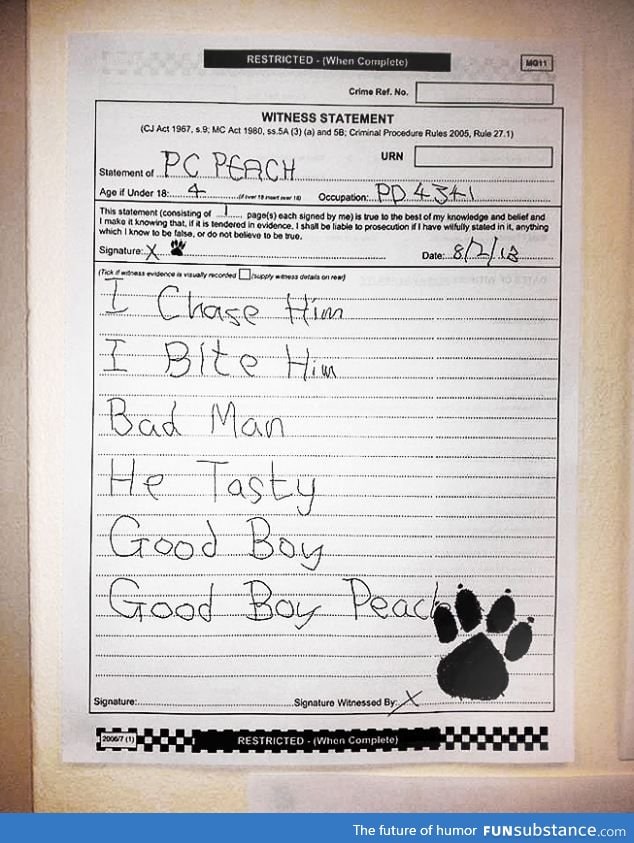 RESTRICTED - (When Complete)
MG11
Crime Ref. No.
WITNESS STATEMENT
(CJ Act 1967, s.9; MC Act 1980, ss.5A (3) (a) and 5B; Criminal Procedure Rules 2005, Rule 27.1)
URN
Statement of PC PEACH
Age if Under 18: 4 (if over 18 insert over 18) Occupation: PD 4341
This statement (consisting of 1 page(s) each signed by me) is true to the best of my knowledge and belief and
I make it knowing that, if it is tendered in evidence, I shall be liable to prosecution if I have wilfully stated in it, anything
which I know to be false, or do not believe to be true.
Signature: X Date: 8/2/13
(Tick if witness evidence is visually recorded (supply witness details on rear)
I Chase Him
I Bite Him
Bad Man
He Tasty
Good Boy
Good Boy Peach
Signature: Signature Witnessed By: X
2006/7 (1)
RESTRICTED - (When Complete)
The future of humor FUNsubstance.com